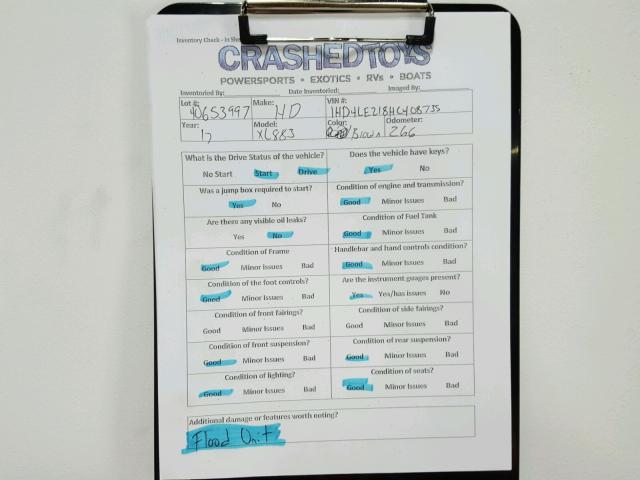 Inventory Check - In She
CRASHEDTOYS
POWERSPORTS • EXOTICS • RVs • BOATS
Inventoried By: Date Inventoried: Imaged By:
Lot #: 40653997 Make: HD VIN #: 1HD4LE218HC408735
Year: 17 Model: XL883 Color: Brown Odometer: 266
What is the Drive Status of the vehicle? Does the vehicle have keys?
No Start Start Drive Yes No
Was a jump box required to start? Condition of engine and transmission?
Yes No Good Minor Issues Bad
Are there any visible oil leaks? Condition of Fuel Tank
Yes No Good Minor Issues Bad
Condition of Frame Handlebar and hand controls condition?
Good Minor Issues Bad Good Minor Issues Bad
Condition of the foot controls? Are the instrument guages present?
Good Minor Issues Bad Yes Yes/has issues No
Condition of front fairings? Condition of side fairings?
Good Minor Issues Bad Good Minor Issues Bad
Condition of front suspension? Condition of rear suspension?
Good Minor Issues Bad Good Minor Issues Bad
Condition of lighting? Condition of seats?
Good Minor Issues Bad Good Minor Issues Bad
Additional damage or features worth noting?
Flood Unit